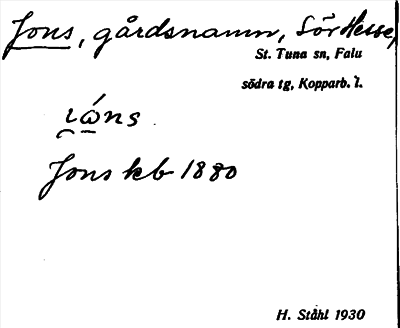 Jons, gårdsnamn, Sör Hesse,
St. Tuna sn, Falu
södra tg, Kopparb. l.
ɩ̯ώ̱ns
Jons kb 1880
H. Ståhl 1930